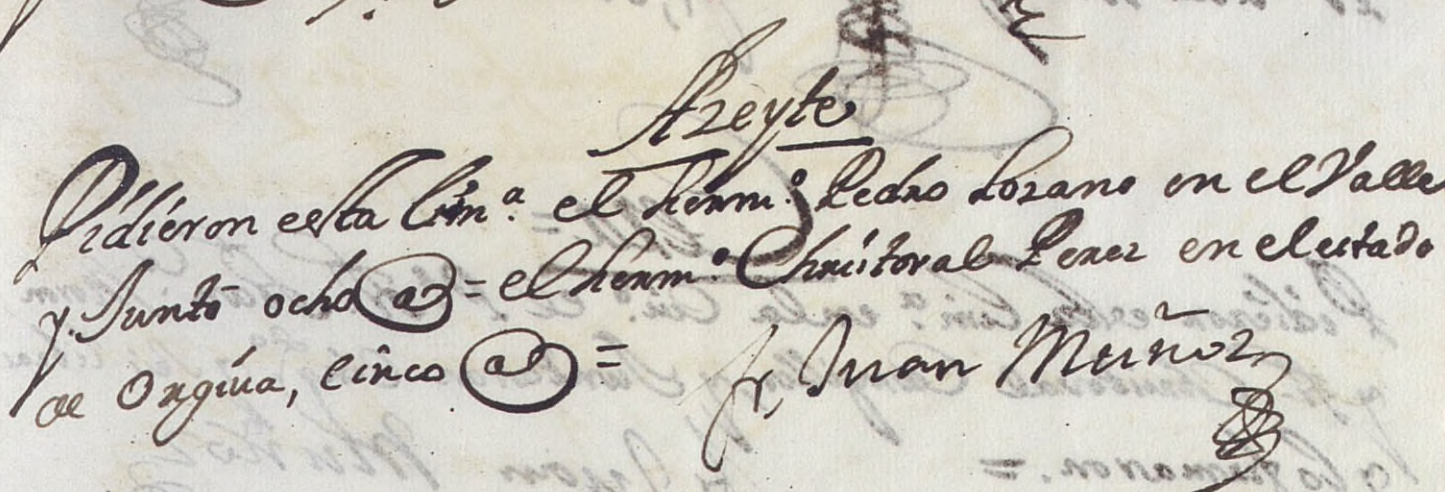 Azeyte
Pidieron esta limª. el hermº. Pedro Lozano en el Valle
y Juntó ocho @s = el hermº Christoval Perez en el estado
de Orgiva, cinco @s =
fr, Juan Muñoz